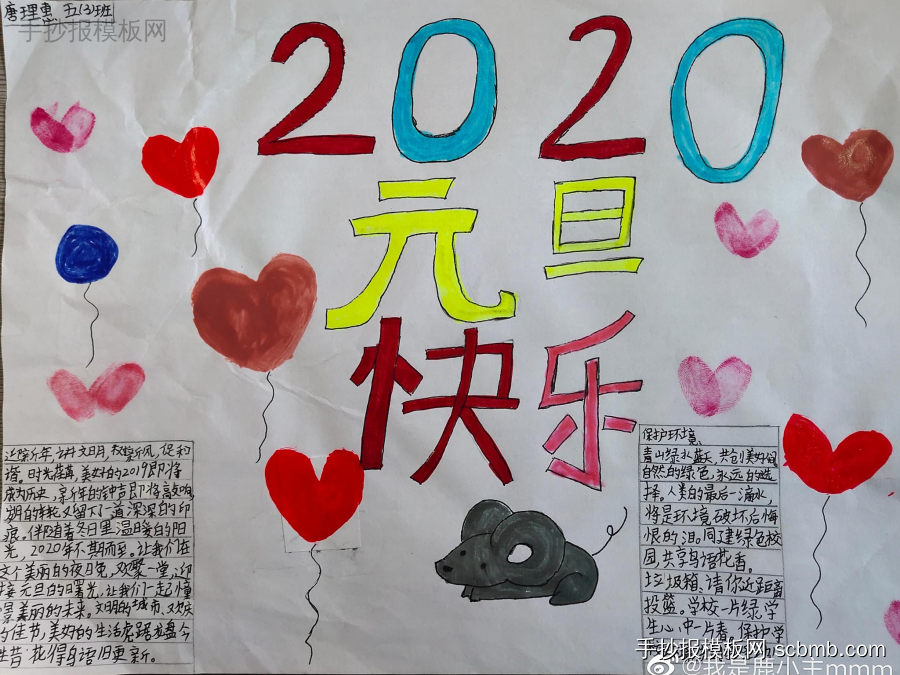 唐理惠 五(3)班
手抄报模板网
2020
元旦
快乐
迎接新年,讲文明,树新风,促和
谐。时光荏苒,美好的2019即将
成为历史,新年的钟声即将敲响,
岁月的车轮又留下了一道深深的印
痕。伴随着冬日里温暖的阳
光,2020年不期而至。让我们在
这个美丽的夜晚,欢聚一堂,迎
接元旦的曙光,让我们一起憧
景美丽的未来。文明的城市,欢庆
的佳节,美好的生活虎踞龙盘今
胜昔 花得鸟语旧更新。
保护环境
青山绿水蓝天,共创美好
自然的绿色,永远的选
择。人类的最后一滴水,
将是环境破坏后悔
恨的泪。同建绿色校
园,共享鸟语花香。
垃圾箱,请你近距离
投篮。学校一片绿,学
生心中一片青。保护学
手抄报模板网 scbmb.com
@我是鹿小羊mmm